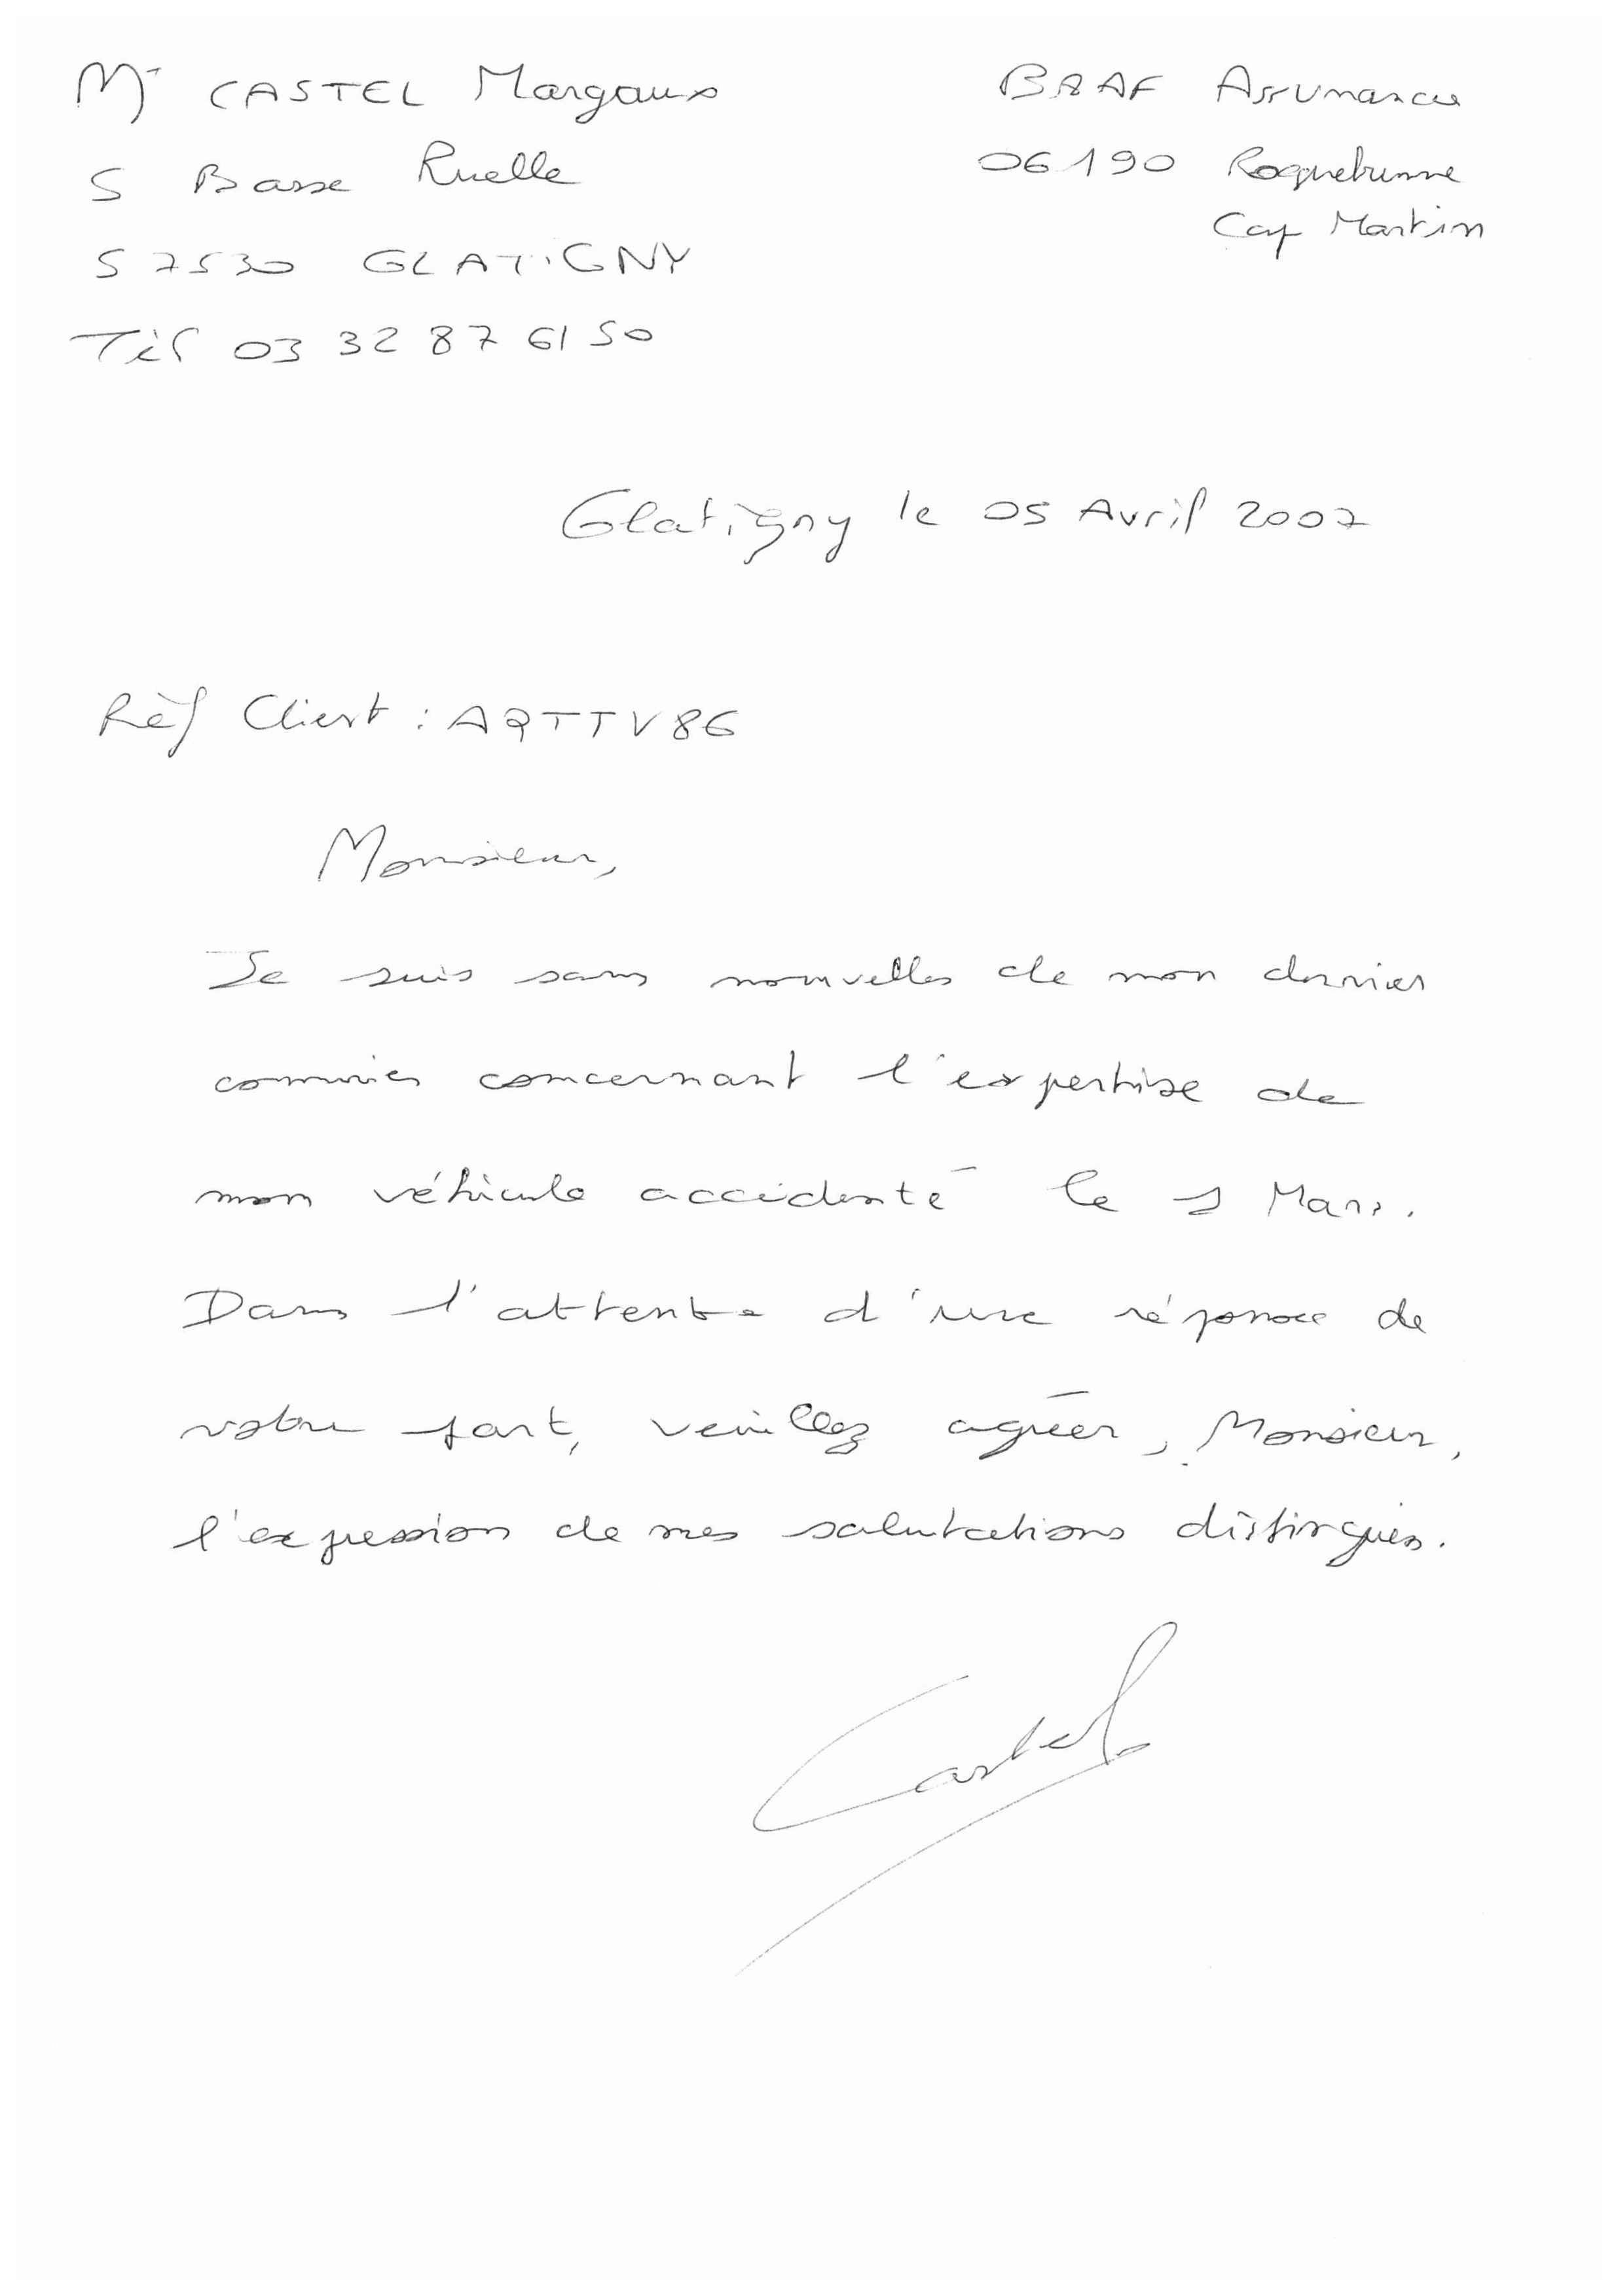 Mr CASTEL Margaux
5 Basse Ruelle
57530 GLATIGNY
Tèl 03 32 87 61 50
BRAF Assurances
06190 Roquebrunne
Cap Martin
Glatigny le 05 Avril 2007
Rèf Client : AQTTV86
Monsieur,
Je suis sans nouvelles de mon dernier
courrier concernant l'expertise de
mon véhicule accidenté le 1 Mars.
Dans l'attente d'une réponse de
votre part, veuillez agréer, Monsieur,
l'expression de mes salutations distingués.
Castel